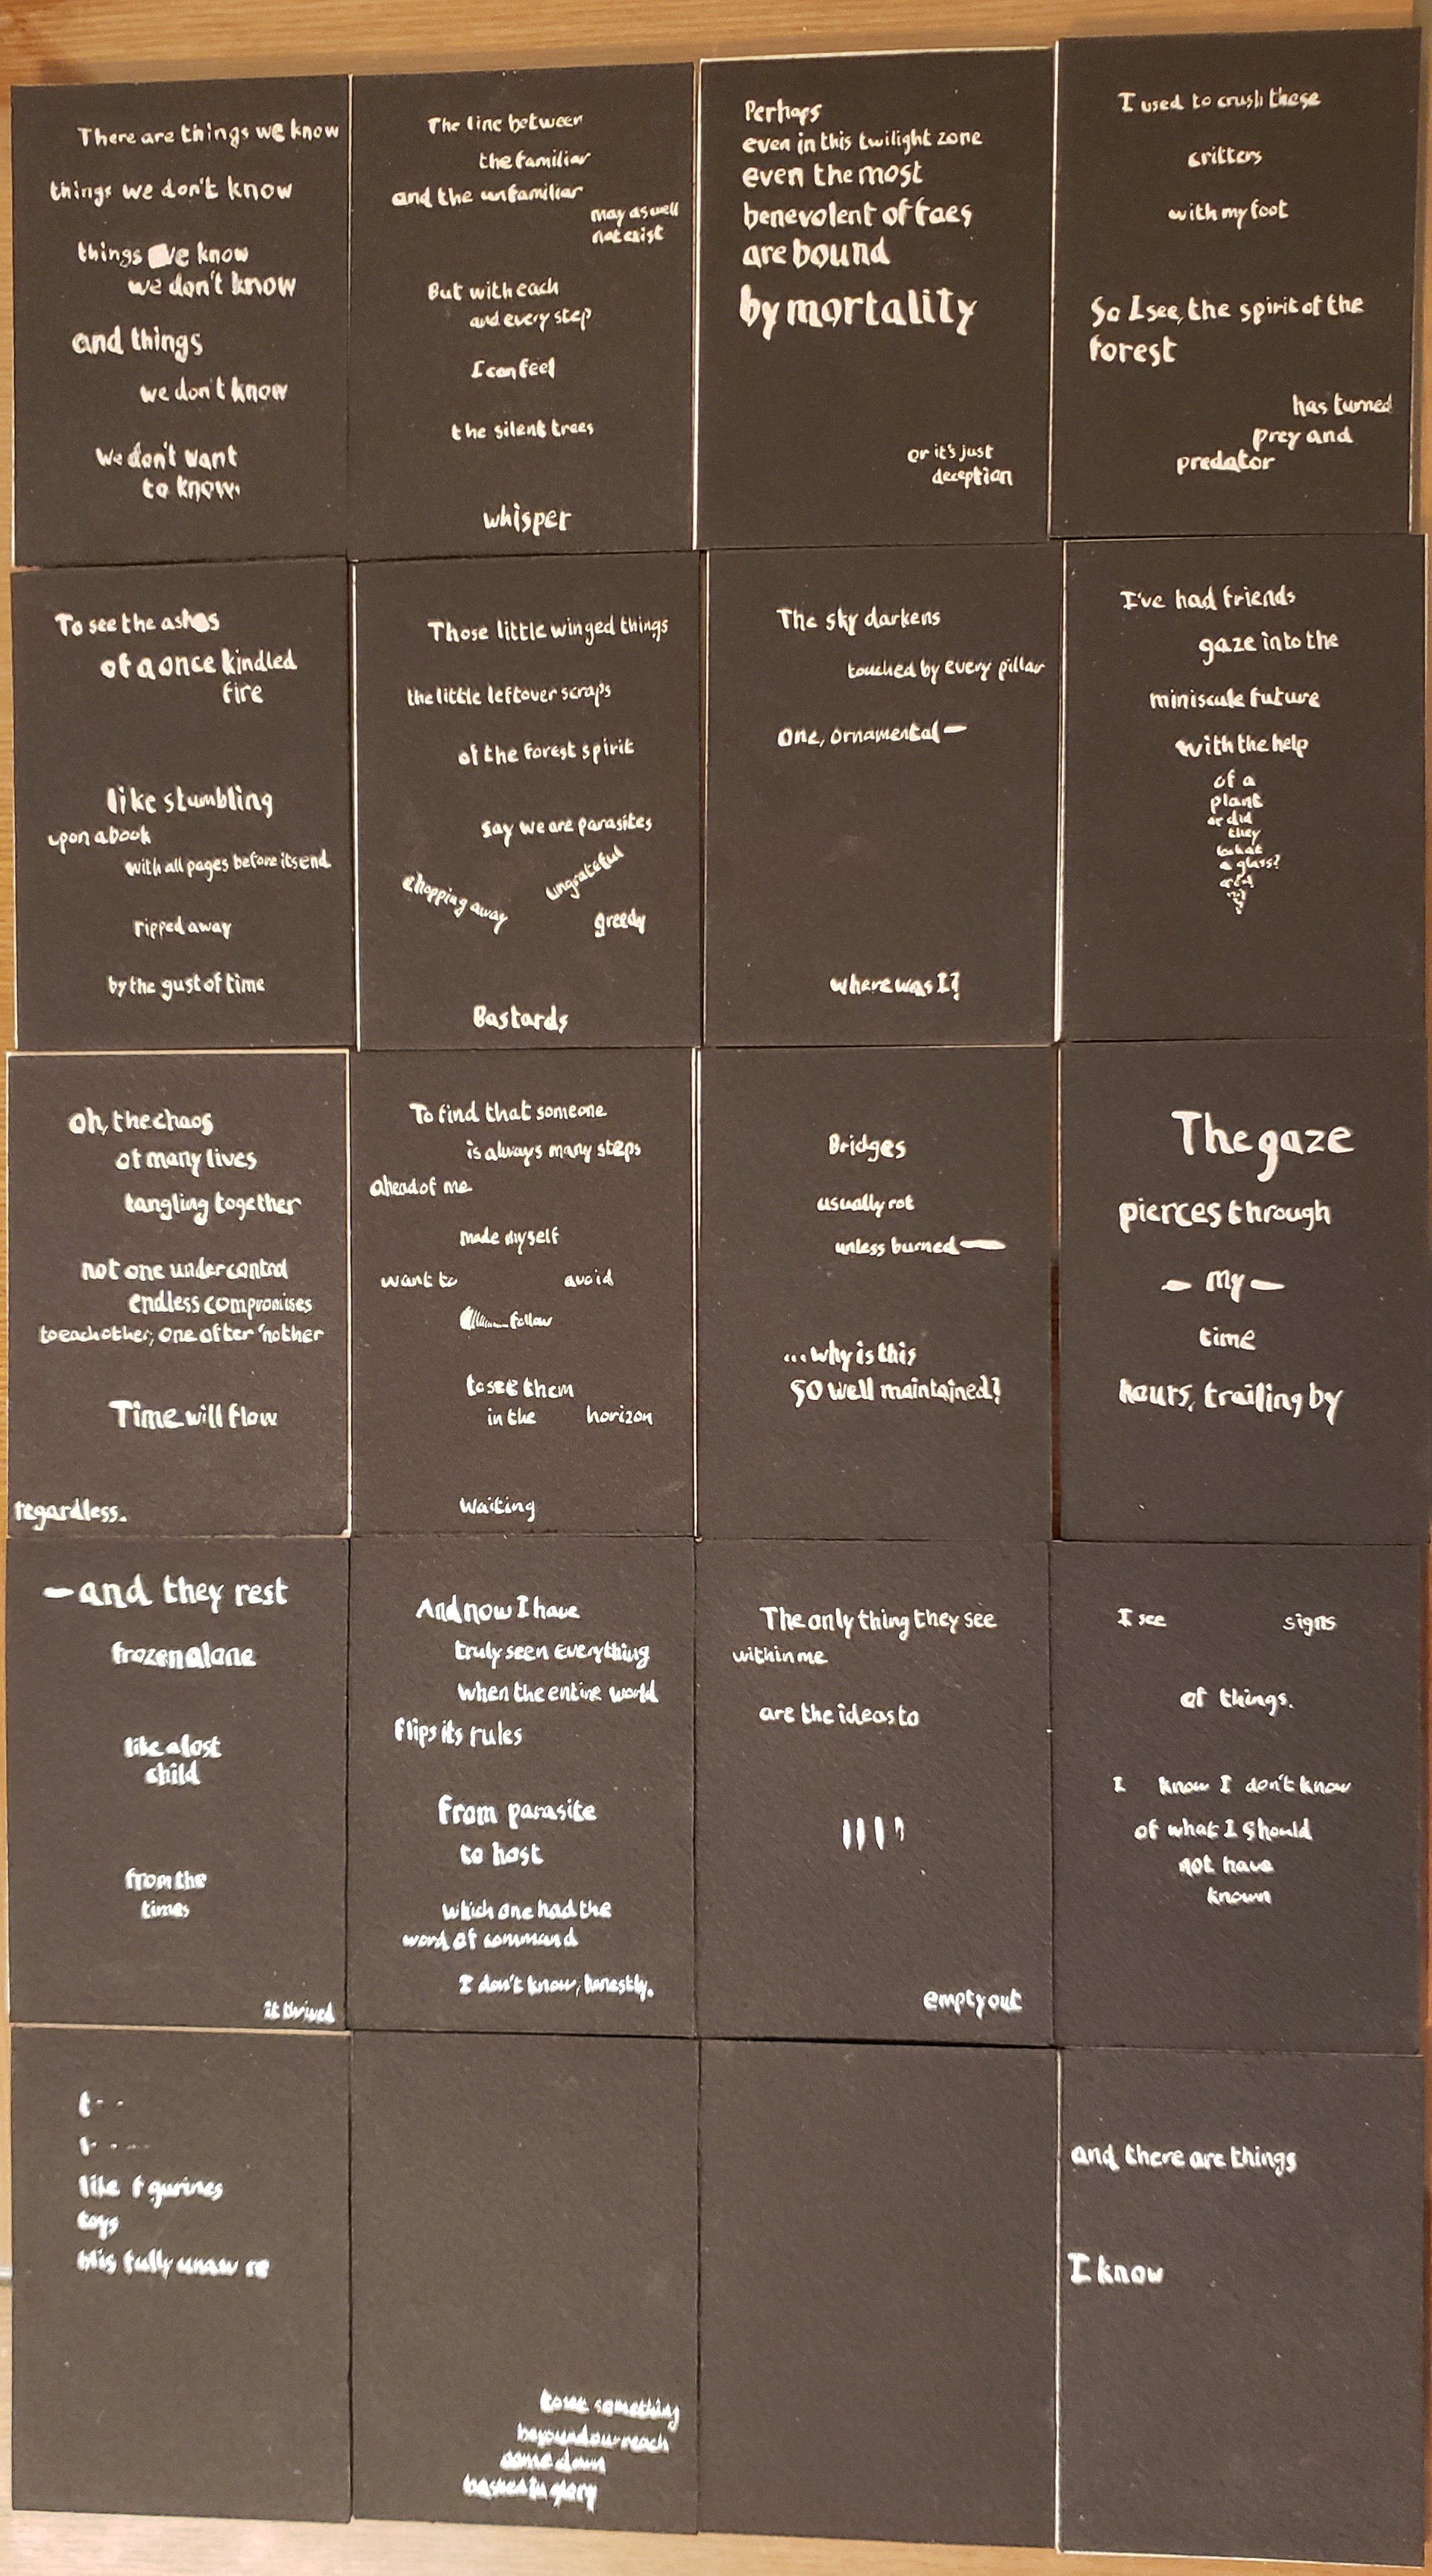 There are things we know
things we don't know
things we know
we don't know
and things
we don't know
We don't want
to know.
The line between
the familiar
and the unfamiliar
may as well
not exist
But with each
and every step
I can feel
the silent trees
whisper
Perhaps
even in this twilight zone
even the most
benevolent of faes
are bound
by mortality
or it's just
deception
I used to crush these
critters
with my foot
So I see, the spirit of the
forest
has turned
prey and
predator
To see the ashes
of a once kindled
fire
like stumbling
upon a book
with all pages before its end
ripped away
by the gust of time
Those little winged things
the little leftover scraps
of the forest spirit
Say we are parasites
chopping away
ungrateful
greedy
Bastards
The sky darkens
touched by every pillar
One, ornamental—
where was I?
I've had friends
gaze into the
miniscule future
with the help
of a
plant
or did
they
look at
a glass?
Oh, the chaos
of many lives
tangling together
not one under control
endless compromises
to each other; one after 'nother
Time will flow
regardless.
To find that someone
is always many steps
ahead of me
made myself
want to avoid
follow
to see them
in the horizon
Waiting
Bridges
usually rot
unless burned—
...why is this
SO well maintained?
The gaze
pierces through
— my —
time
hours, trailing by
—and they rest
frozen alone
like a lost
child
from the
times
it thrived
And now I have
truly seen everything
when the entire world
flips its rules
From parasite
to host
which one had the
word of command
I don't know, honestly.
The only thing they see
within me
are the ideas to
empty out
I see signs
of things.
I know I don't know
of what I should
not have
known
t
like f gurines
toys
blis fully unaw re
to see something
beyond our reach
come down
basked in glory
and there are things
I know